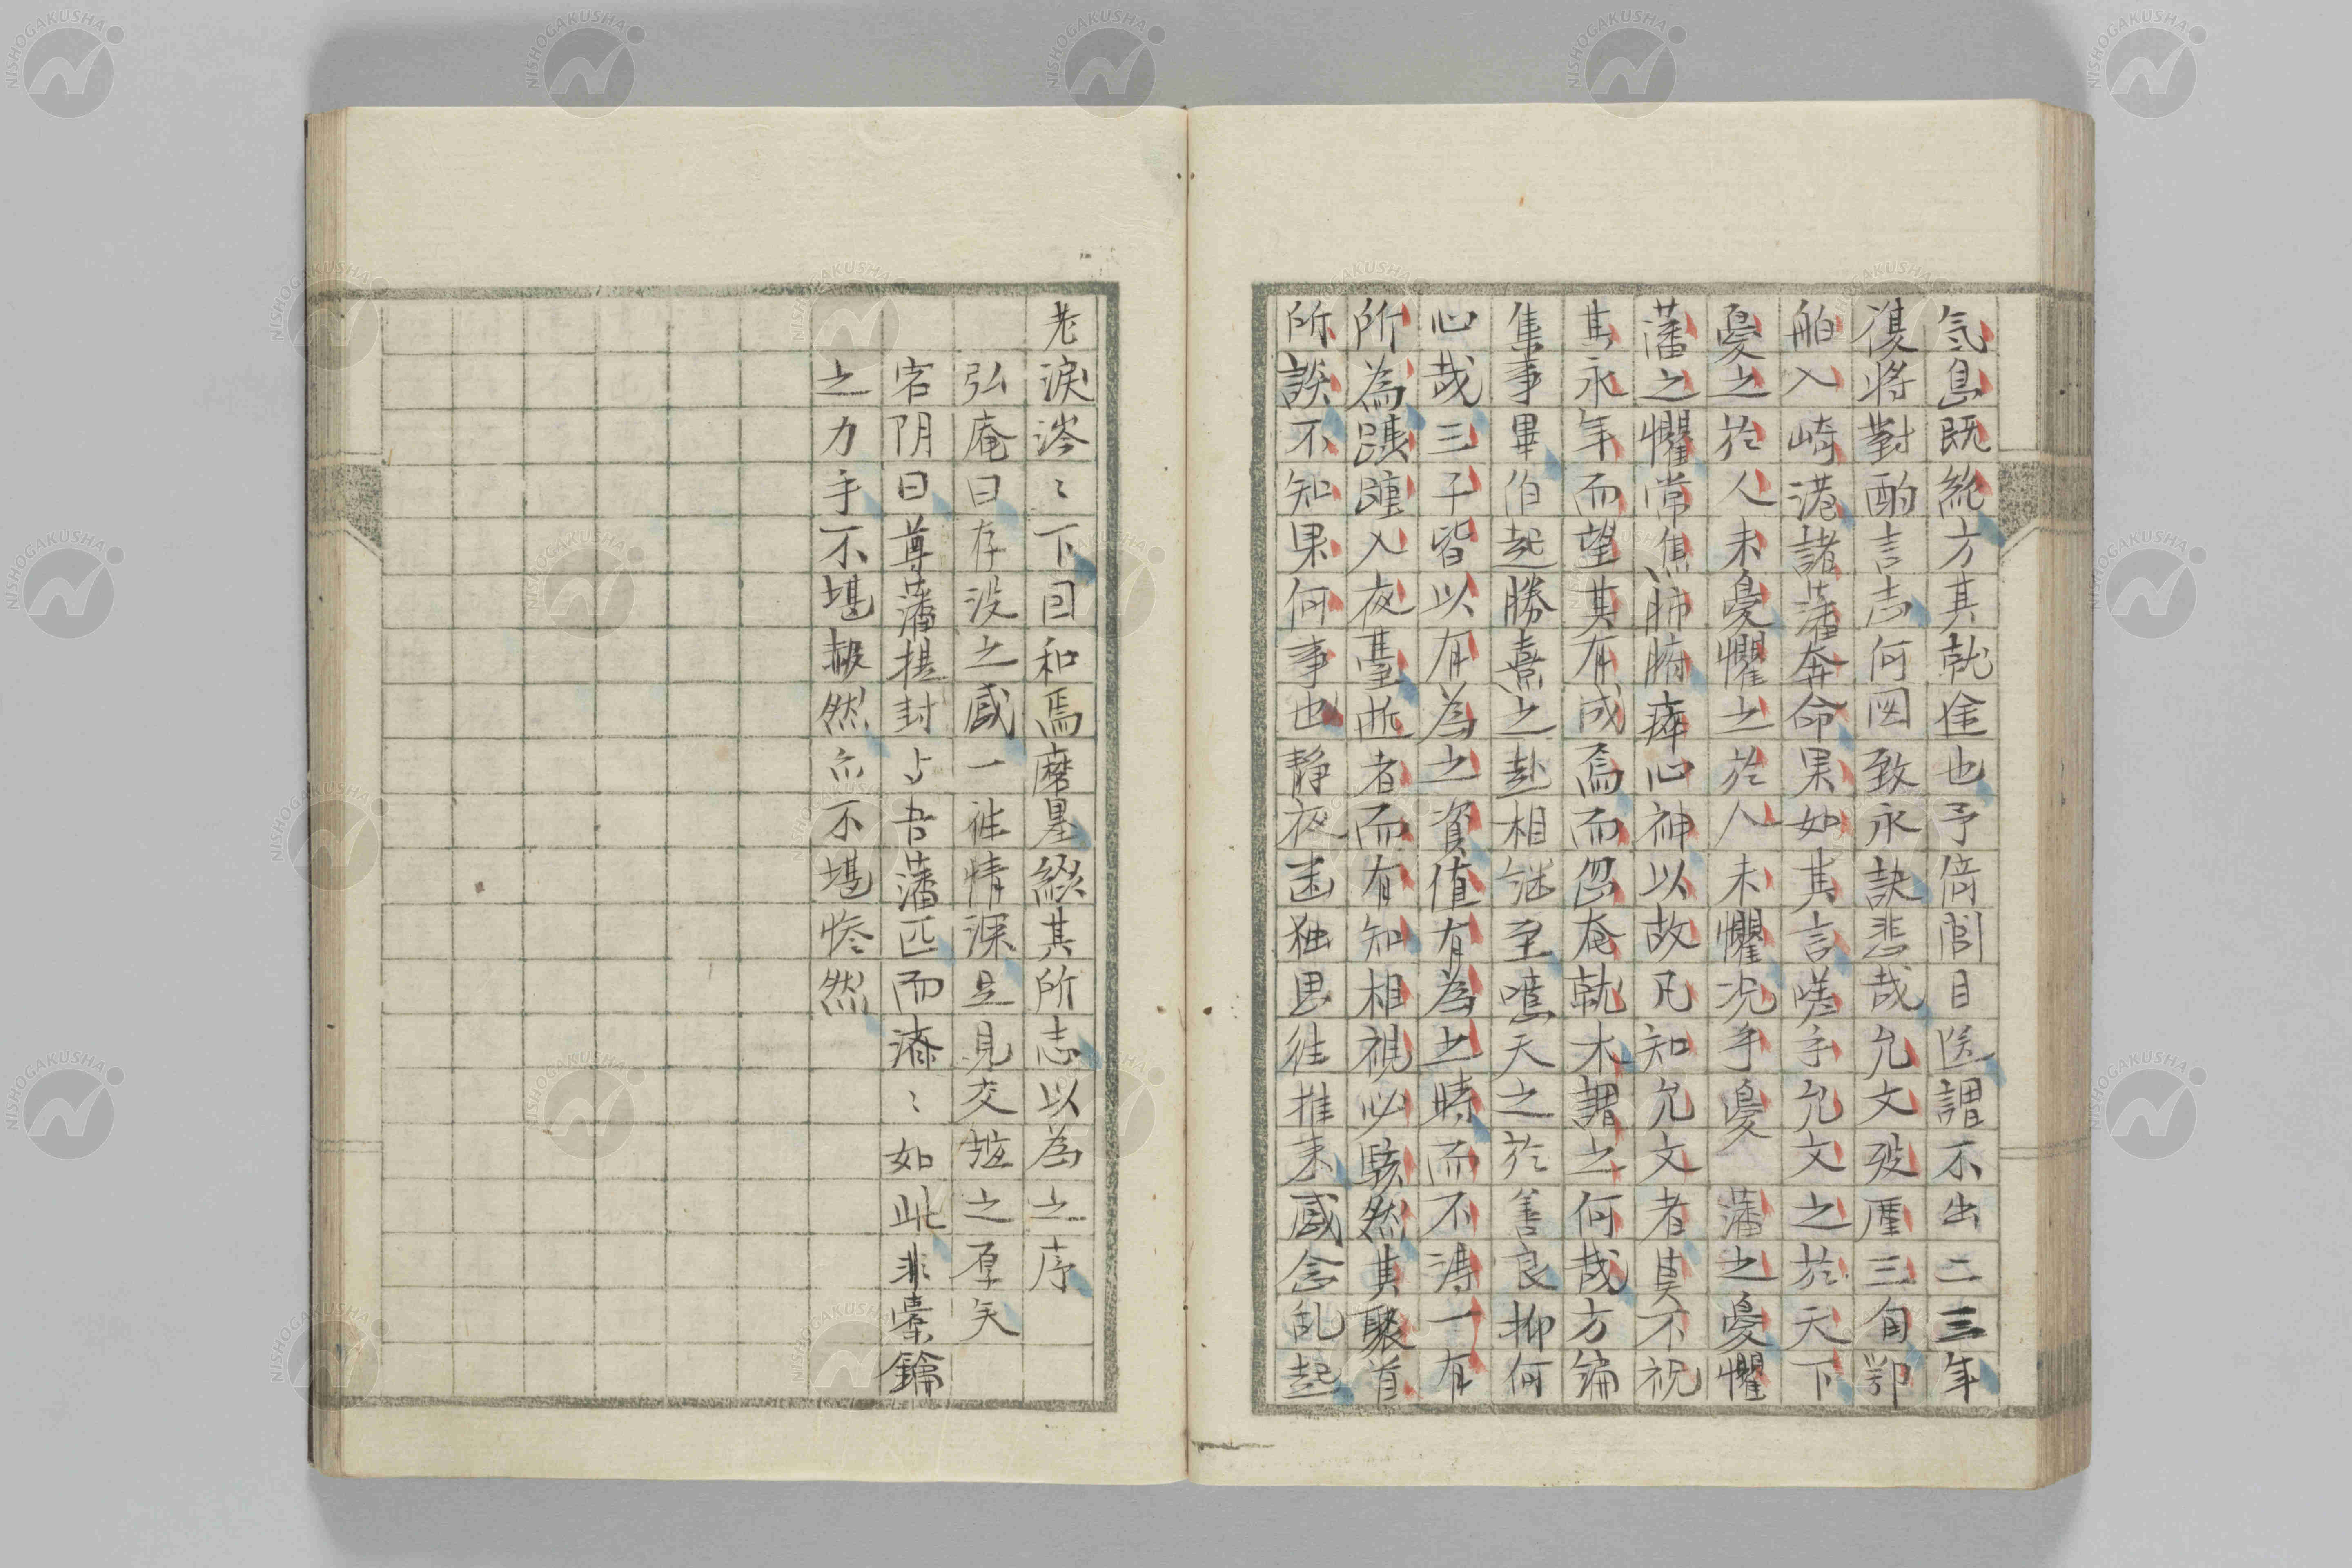 気息既絶方其就途也予倚閣目送謂不出二三年
復将對酌言志何図致永訣悲哉允文歿厪三旬鄂
舶入崎港諸藩奔命果如其言嗟乎允文之於天下
憂之於人未憂懼之於人未懼况乎憂藩之憂懼
藩之懼常焦肺腑瘁心神以故凡知允文者莫不祝
其永年而望其有成焉而忽奄就木謂之何哉方編
集事畢伯起勝熹之赴相継至噫天之於善良抑何
心哉三子皆以有為之資値有為之時而不得一有
所為蹎踵入夜臺逝者而有知相視必駭然其聚首
所談不知果何事也静夜函独思往推来感念乱起
老涙涔〻下因和焉磨墨綴其所志以為之序
弘庵曰存没之感一往情深且見交誼之厚矣
宕阴曰尊藩提封与吾藩匹而済〻如此非橐鑰
之力乎不堪赧然亦不堪惨然
NISHOGAKUSHA